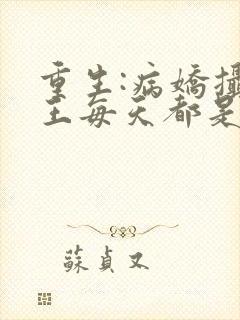 重生:病嬌攝
王每天都是
蘇貞又